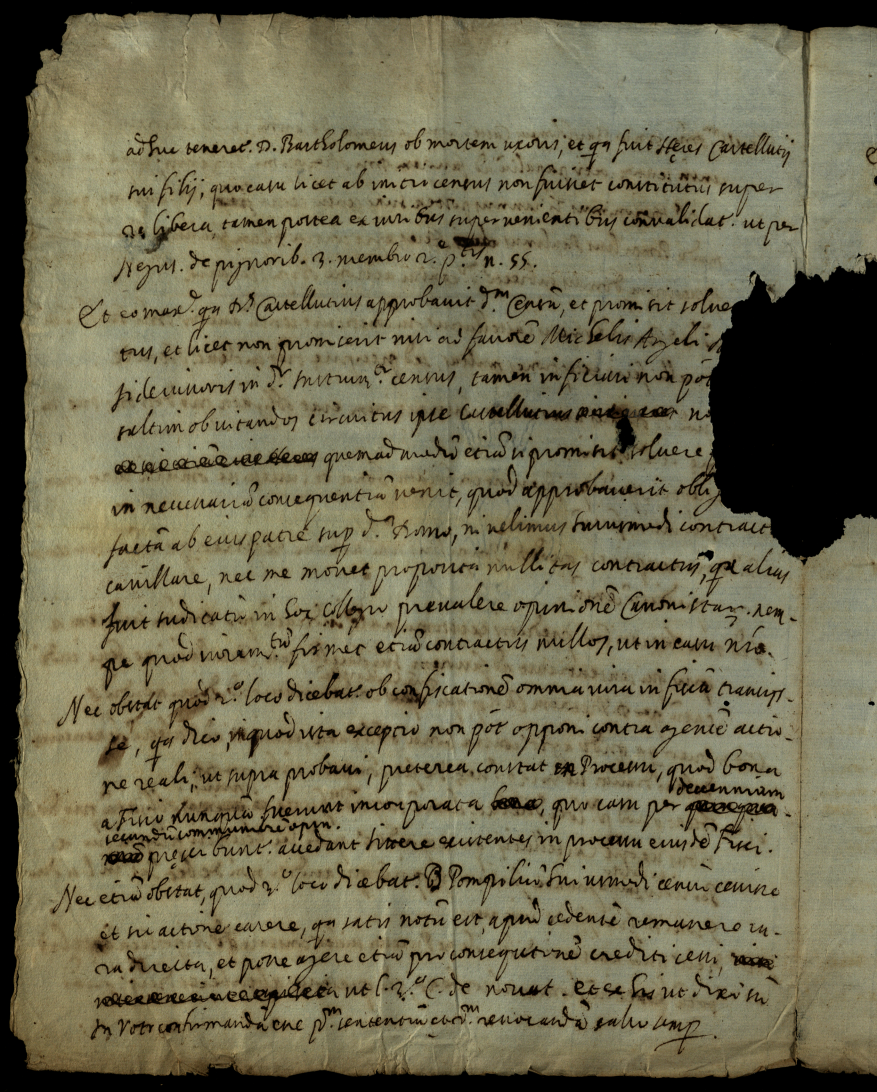 adhuc teneret. D. Bartholomeus ob mortem uxoris, et qa fuit Heres Castellutij
sui filij, quo casu licet ab initio census non fuisset constitutus super
re libera, tamen postea ex iuribus supervenientibus convalidat. ut per
Negus. de pignorib. 3. membro 2.e p.tis n. 55.
Et eo max.e qa D.s Castellutius approbavit d.m Censū, et promisit solve
tus, et licet non promiserit nisi ad favorē Michelis Angeli
fideiussoris in d.o Instrum.to census, tamen inficiari non pōt
saltim ob vitandos circuitus ipse Castellutius no
quemadmodū etiā si promisit solvere
in necessariā consequentiā venit, quod approbaverit oblig
factā ab eius patre sup d.a Domo, ni velimus huiusmodi contract
cavillare, nec me movet proposita nullitas contractus, qa alias
fuit iudicatū in hoc Collegio prevalere opinionē Canonistar. nem-
pe quod iuram.tū firmet etiā contractus nullos, ut in casu nr̄o.
Nec obstat quod 2.o loco dicebat. ob confiscationē omnia iura in fiscū transis-
se, qa dico, quod ista exceptio non pōt opponi contra agentē actio-
ne reali, ut supra probavi, preterea constat ex Processu, quod bona
a Fisco nunquā fuerunt incorporata, quo casu per decennium
secundū communiorē opin.
prescribunt. accedant littere existentes in processu eiusdē Fisci.
Nec etiā obstat, quod 3.o loco dicebat. D Pompiliū huiusmodi censū cessisse
et sic actione carere, qa satis notū est, apud cedentē remanere iu-
ra directa, et posse agere etiā pro consequtione crediti cessi,
ut l. 3.a C. de novat. et ex his ut dixi sū
in Voto confirmandā esse p.m sententiā et d.m revocandā salvo semp.